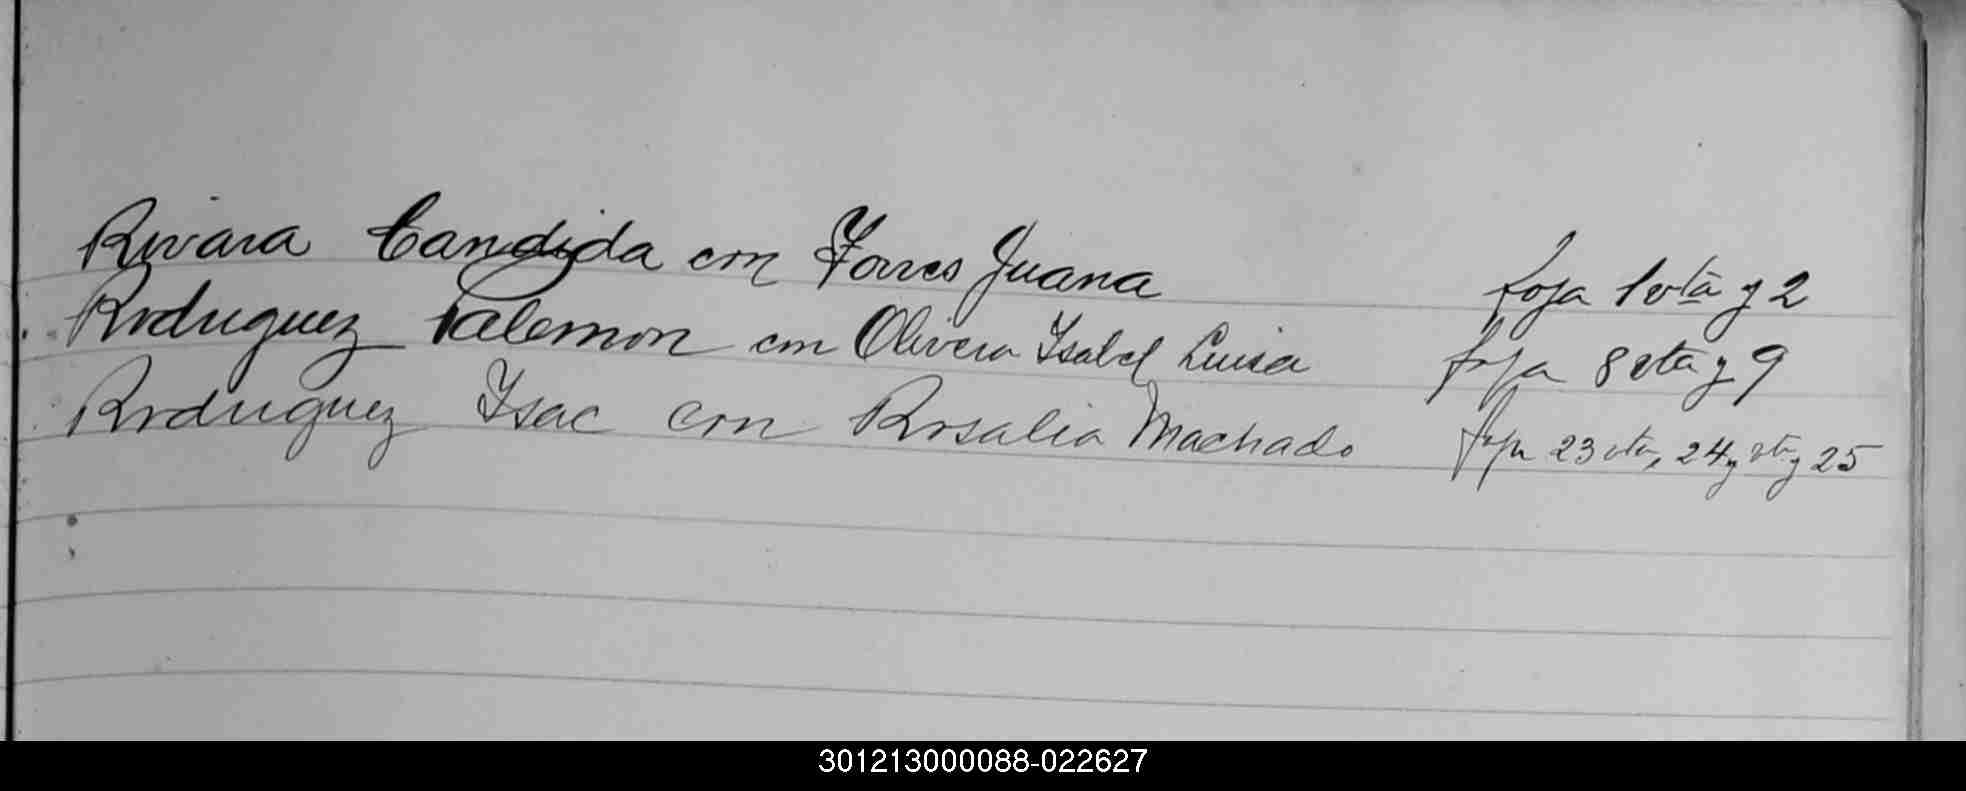 Rivara Candida con Torres Juana foja 1 vta y 2
Rodriguez Palemon con Olivera Isabel Luisa foja 8 vta y 9
Rodriguez Isac con Rosalia Machado foja 23 vta, 24 y vta y 25
301213000088-022627